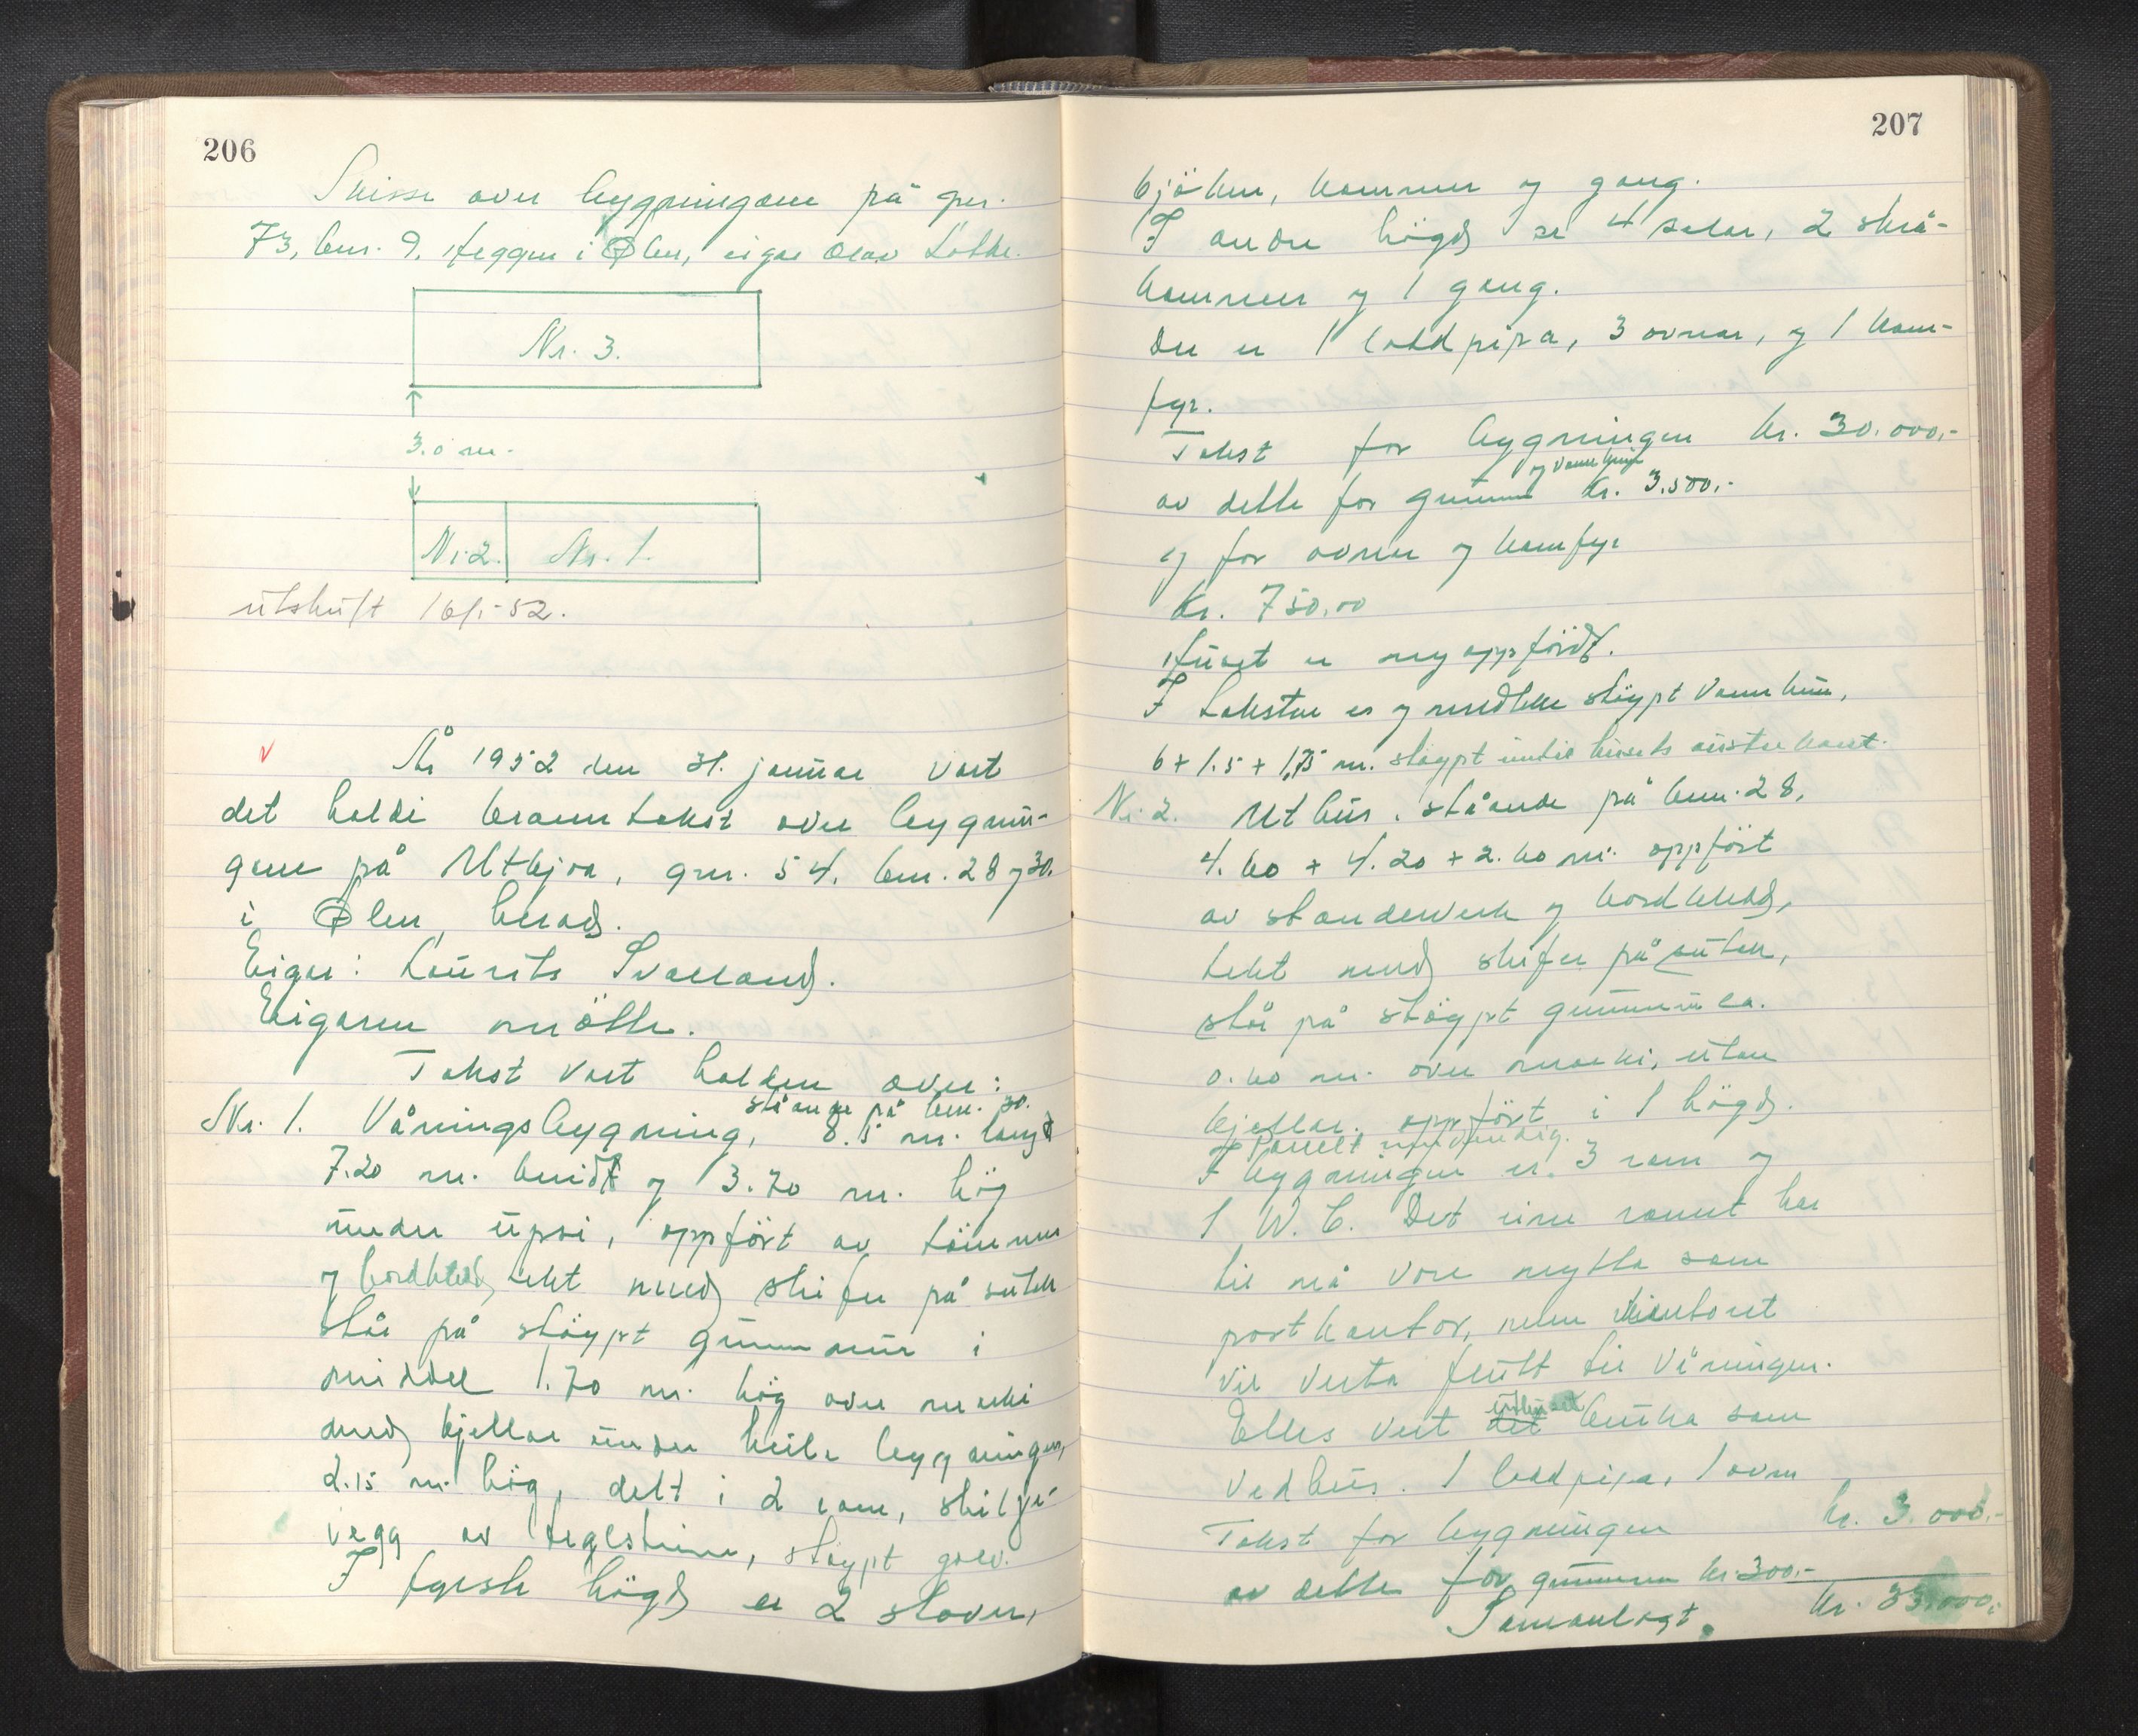 206
Skisse over bygningane på gnr.
73, bnr. 9. Heggen i Ølen, eigar Olav Løkke.
Nr. 3.
3.0 m.
Nr. 2. Nr. 1.
utskrift 16/1-52.
År 1952 den 31. januar vart
det haldi branntakst over bygnin-
gane på Utbjoa, gnr. 54, bnr. 28 og 30.
i Ølen herad.
Eigar: Laurits Svalland.
Eigaren møtte.
Takst vart halden over:
ståande på bnr. 30.
Nr. 1. Våningsbygning, 8.5 m. lang
7.20 m. breid og 3.70 m. høg
under upsi, oppført av tømmer
og bordkled, tekt med skifer på sutak
står på støypt grunnmur i
middel 1.70 m. høg over marki
med kjellar under heile bygningen,
2.15 m. høg, delt i 2 rom, skilje-
vegg av teglsteine, støypt golv.
I fyrste høgd er 2 stover,
207
kjøken, kammer og gang.
I andre høgd er 4 salar, 2 skrå-
kammer og 1 gang.
Der er 1 loddpipa, 3 ovnar, og 1 kom-
fyr.
Takst for bygningen kr. 30.000,-
av dette for grunnm kr. 3.500,-
og for ovner og komfyr
kr. 750,00
Huset er ny oppførdt.
I taksten er og medteke støypt vannkum,
6 + 1.5 + 1,75 m. støypt inntil husets austre kant.
Nr. 2. Uthus, ståande på bnr. 28,
4.60 + 4.20 + 2.60 m. oppført
av standerverk og bordkledd,
tekt med skifer på sutak,
står på støypt grunnmur ca.
0.60 m. over marki, utan
kjellar, oppført i 1 høgd.
Panelt innvendig.
I bygningen er 3 rom og
1 W.C. Det eine romet har
til nå vore nytta som
postkontor, men kontoret
vil verta flutt til våningen.
Elles vert det bruka som
vedhus. 1 loddpipa, 1 ovn
Takst for bygningen kr. 3.000,-
av dette for grunnmur kr. 300,-
Samanlagt. kr. 33.000,-